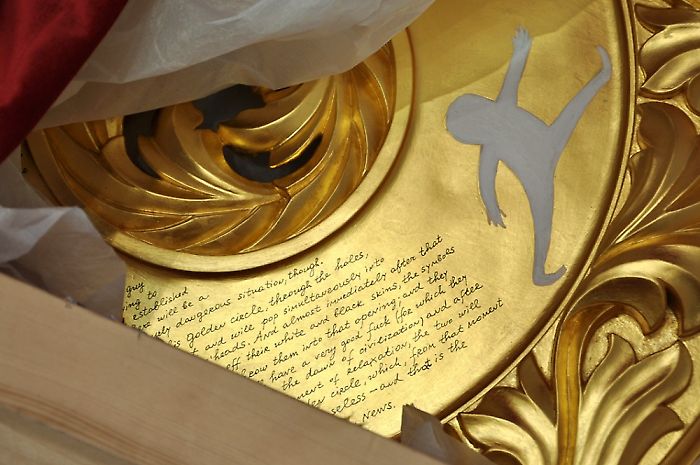 guy
ing to
established
there will be a
dangerous situation, though.
is golden circle, through the holes,
and will pop simultaneously into
heads. And almost immediately after that
off their white and black skins, the symbols
follow them into that opening, and they
have a very good fuck (for which they
the dawn of civilization) and after
ment of relaxation, the two will
den circle, which, from that moment
seless – and that is the
News.